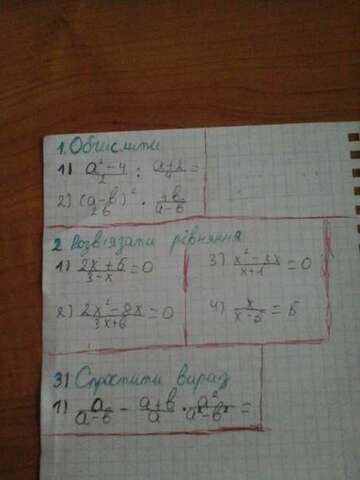 1. Обчислити
1) (a²-4)/2 : (a+2)/4 =
2) ((a-b)/2b)² · 4b/(a-b)
2 Розв'язати рівняння
1) (2x+5)/(3-x) = 0
3) (x²-3x)/(x+1) = 0
2) (2x²-8x)/(3x+6) = 0
4) x/(x-5) = 5
3) Спростити вираз
1) a/(a-b) - (a+b)/a · a²/(a²-b²) =